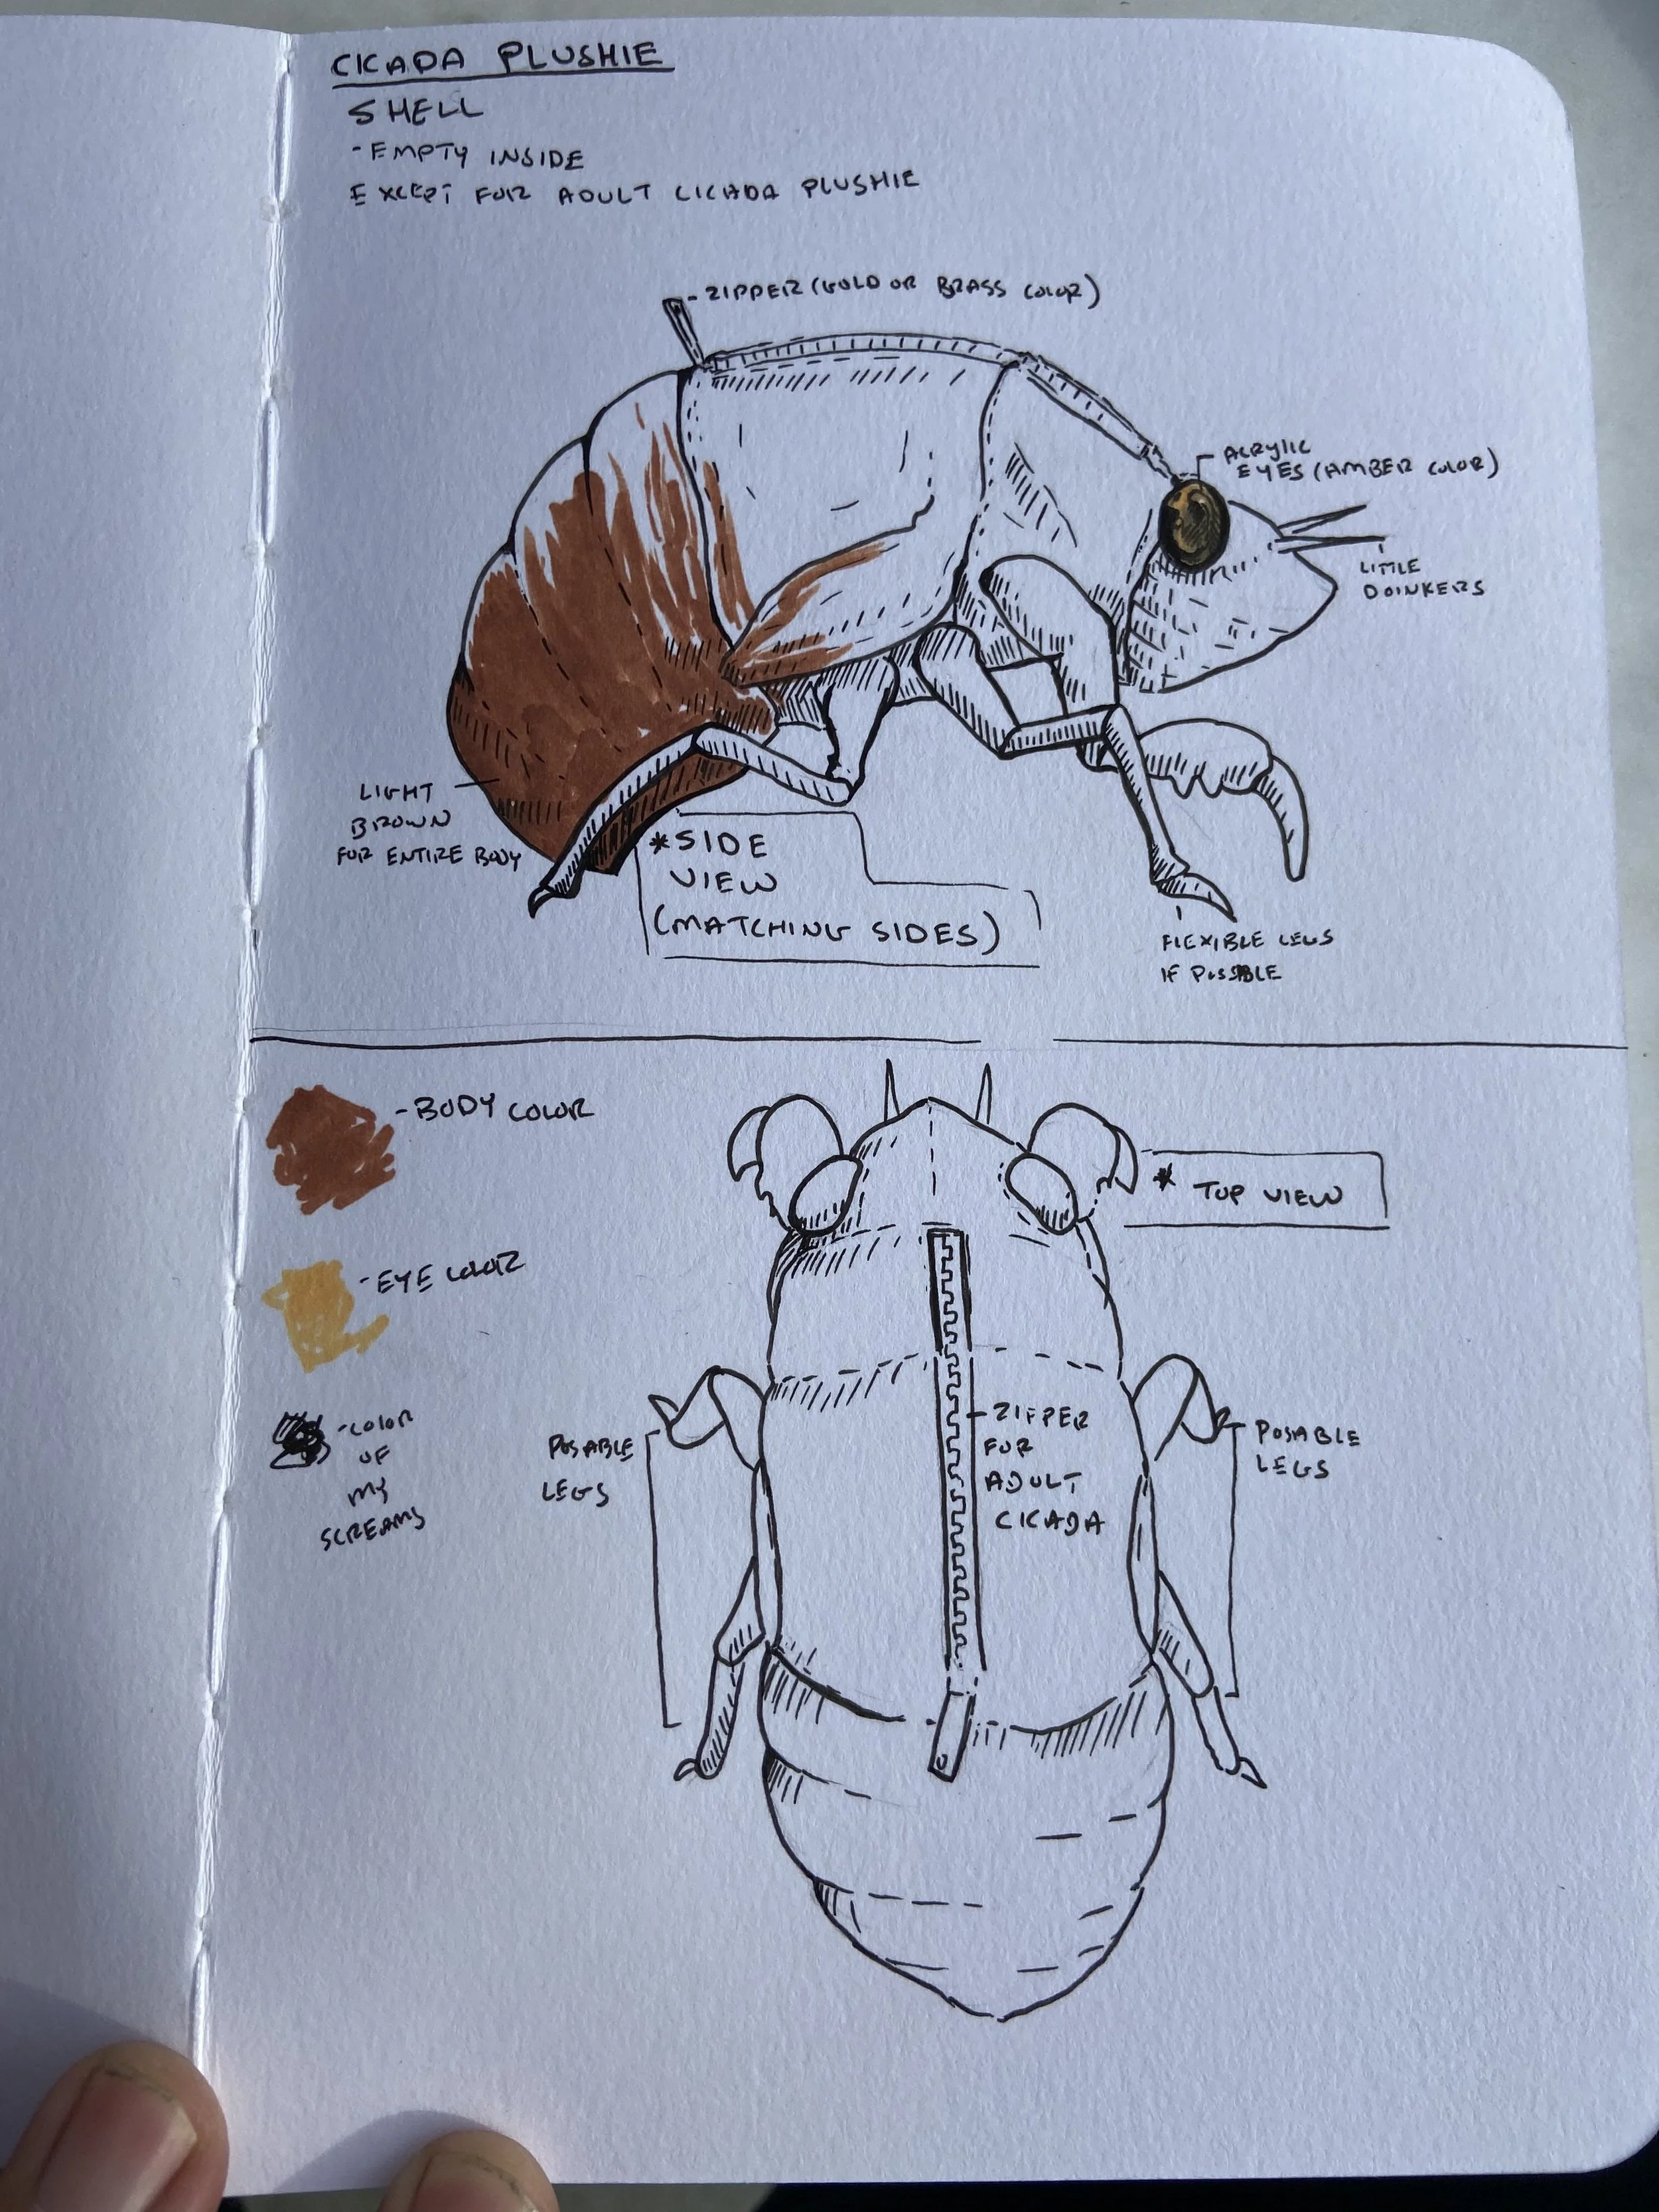 CICADA PLUSHIE
SHELL
- EMPTY INSIDE
EXCEPT FOR ADULT CICADA PLUSHIE
- ZIPPER (GOLD OR BRASS COLOR)
ACRYLIC
EYES (AMBER COLOR)
LITTLE
DOINKERS
LIGHT
BROWN
FOR ENTIRE BODY
* SIDE
VIEW
(MATCHING SIDES)
FLEXIBLE LEGS
IF POSSIBLE
- BODY COLOR
* TOP VIEW
- EYE COLOR
- COLOR
OF
MY
SCREAMS
POSABLE
LEGS
- ZIPPER
FOR
ADULT
CICADA
POSABLE
LEGS